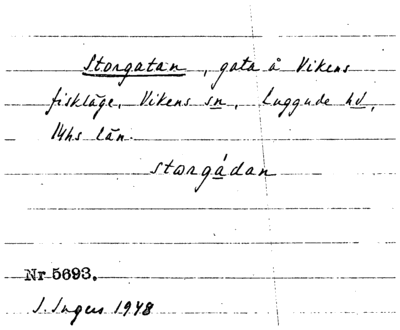 Storgatan, gata å Vikens
fiskläge, Vikens sn, Luggude hd,
Mhs län.
storgådan
Nr 5693.
I. Ingers 1948